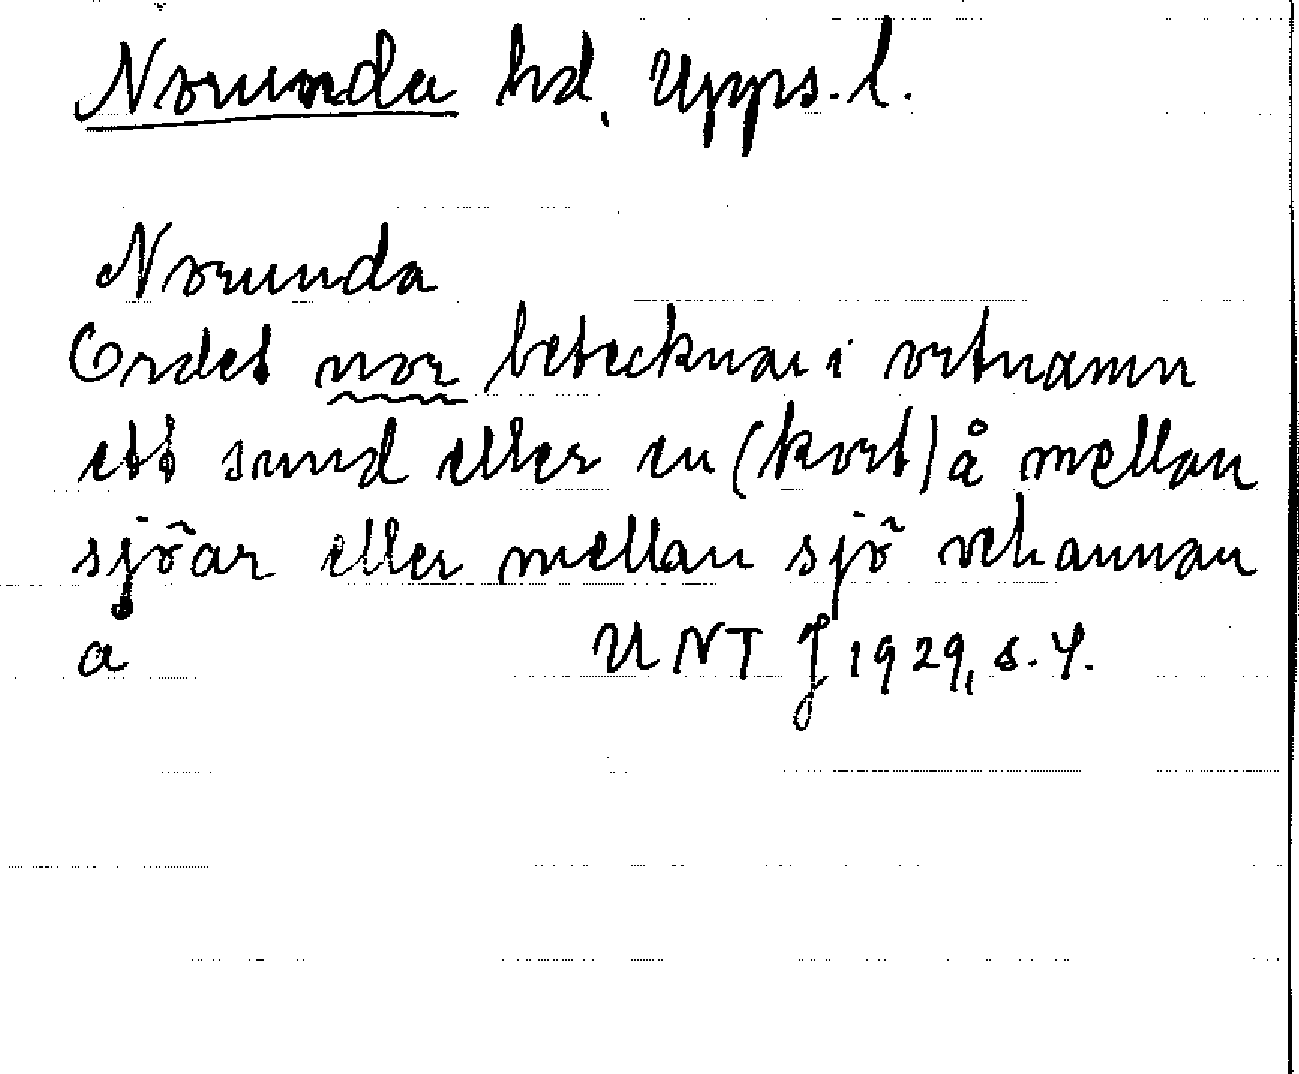 Norunda hd. Upps. l.
Norunda
Ordet nor betecknar i ortnamn
ett sund eller en (kort) å mellan
sjöar eller mellan sjö och annan
å UNT J 1929, s. 4.